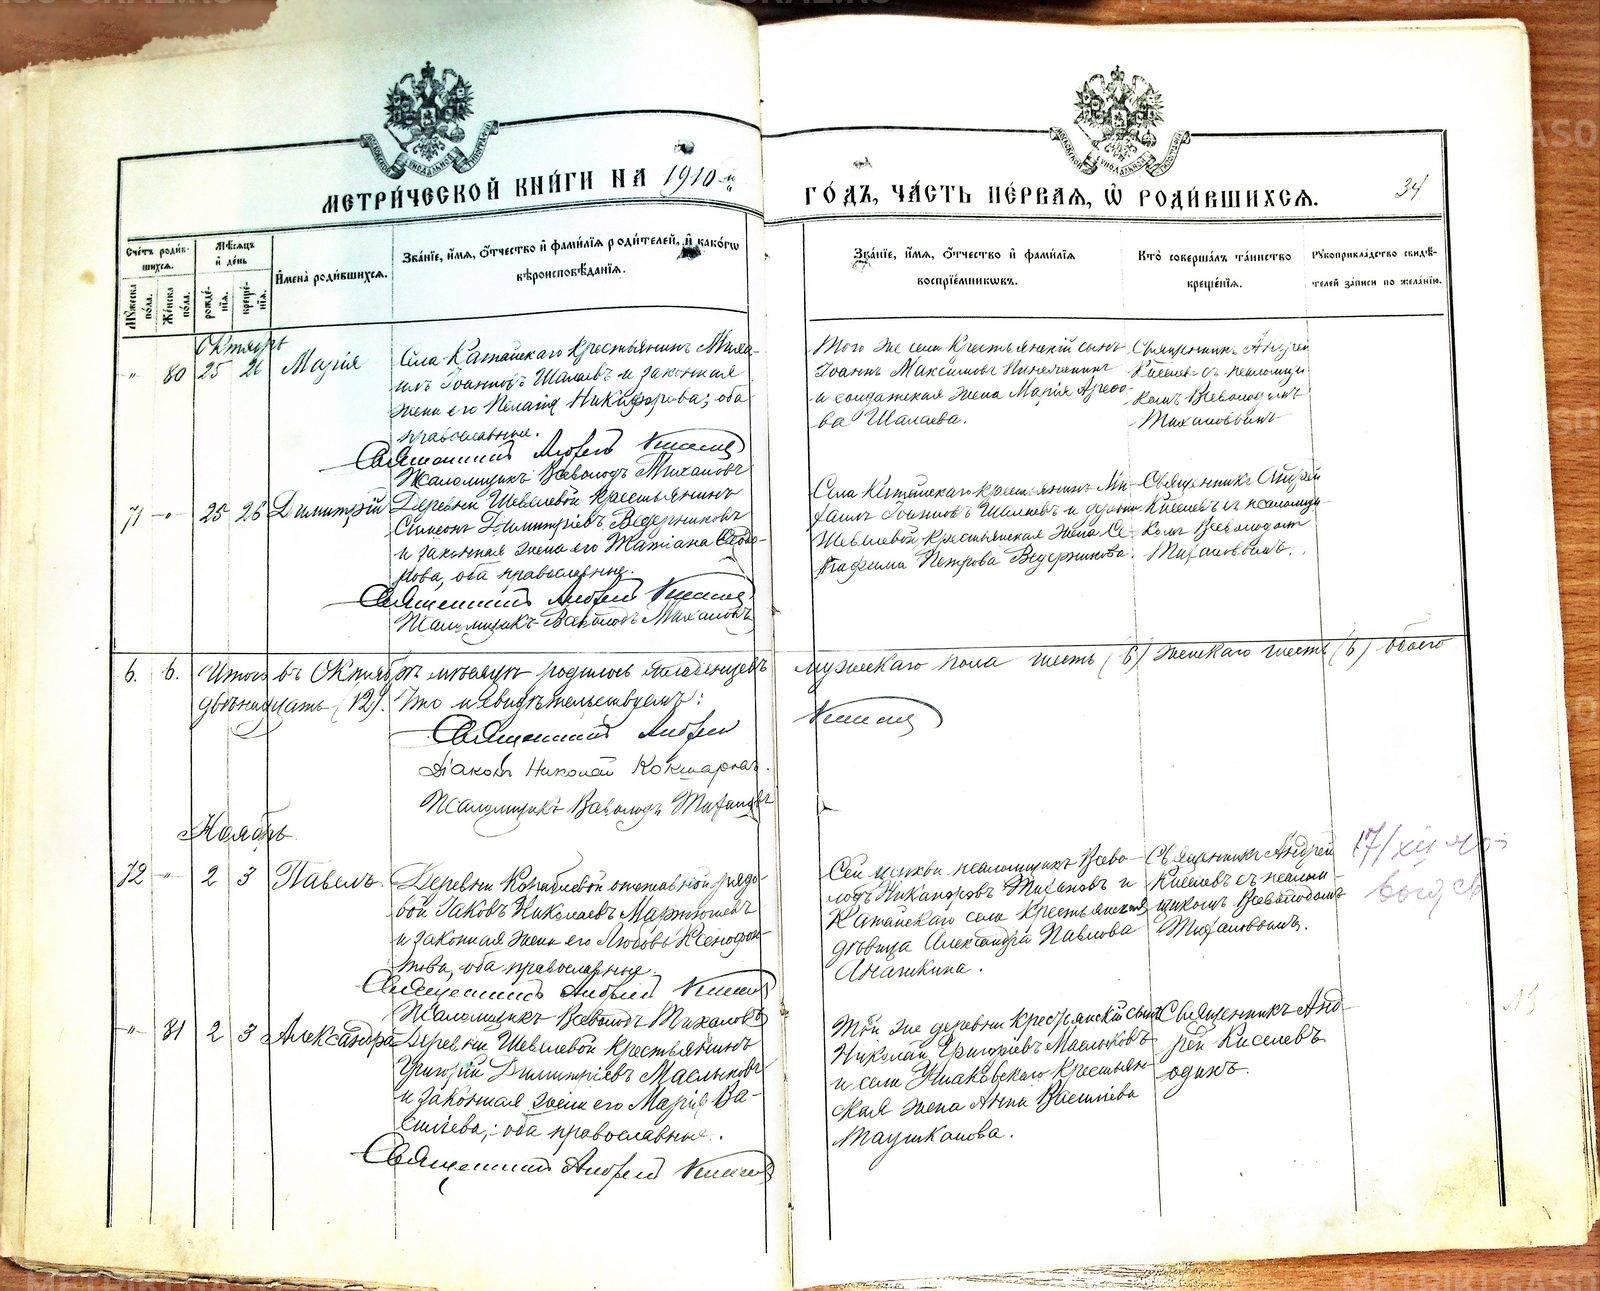 МЕТРИ́ЧЕСКОЙ КНИ́ГИ НА 1910-й
ГО́ДЪ, ЧА́СТЬ ПЕ́РВАЯ, Ѡ РОДИ́ВШИХСЯ.
34
Сче́тъ роди́в-
шихся.
Мѣ́сяцъ
и де́нь
Мꙋ́жеска по́ла.
Же́нска по́ла.
рожде́-
нїя.
креще́-
нїя.
И҆мена̀ роди́вшихся.
Зва́нїе, и҆́мя, ѻ҆́тчество и҆ фами́лїя роди́телей, и҆ како́гѡ
вѣроисповѣ́данїя.
Зва́нїе, и҆́мя, ѻ҆́тчество и҆ фами́лїя
воспрїе́мникѡвъ.
Кто̀ соверша́лъ та́инство
креще́нїя.
Рꙋкоприкла́дство свидѣ́-
телей за́писи по жела́нїю.
Октябрь
" 80 25 26 Марія
Села Катайскаго крестьянинъ Миха-
илъ Іоанновъ Шалаевъ и законная
жена его Пелагія Никифорова; оба
православные.
Священникъ Андрей Киселевъ
Псаломщикъ Всеволодъ Михаловъ
Того же села крестьянскій сынъ
Іоаннъ Максимовъ
и солдатская жена Марія
ва Шалаева.
Священникъ Андрей
Киселевъ съ псаломщи-
комъ Всеволодомъ
Михаловымъ
71 " 25 26 Димитрій
Деревни Шевелевой крестьянинъ
Симеонъ Димитріевъ Ведерниковъ
и законная жена его Татіана
рова, оба православные.
Священникъ Андрей Киселевъ
Псаломщикъ Всеволодъ Михаловъ
Села Катайскаго крестьянинъ Ми-
хаилъ Іоанновъ Шалаевъ и деревни
Шевелевой крестьянская жена Се-
рафима Петрова Ведерникова.
Священникъ Андрей
Киселевъ съ псаломщи-
комъ Всеволодомъ
Михаловымъ.
6. 6. Итого въ Октябрѣ мѣсяцѣ родилось младенцевъ мужескаго пола шесть (6) женскаго шесть (6) обоего
двѣнадцать (12). Что и свидѣтельствуемъ:
Священникъ Андрей Киселевъ
Діаконъ Николай Кокшаровъ.
Псаломщикъ Всеволодъ Михаловъ
Ноябрь
72 " 2 3 Павелъ
Деревни Кораблевой отставной рядо-
вой Іаковъ Николаевъ Мартюшевъ
и законная жена его Любовь Ксенофон-
това, оба православные.
Священникъ Андрей Киселевъ
Псаломщикъ Всеволодъ Михаловъ
Сей церкви псаломщикъ Всево-
лодъ Никандровъ Михаловъ и
Катайскаго села крестьянская
дѣвица Александра Павлова
Анашкина.
Священникъ Андрей
Киселевъ съ псалом-
щикомъ Всеволодомъ
Михаловымъ.
" 81 2 3 Александра
Деревни Шевелевой крестьянинъ
Григорій Димитріевъ Маслыковъ
и законная жена его Марія Ва-
силіева; оба православные.
Священникъ Андрей Киселевъ
Той же деревни крестьянскій сынъ
Николай Григоріевъ Маслыковъ
и села Ушаковскаго крестьян-
ская жена Анна Василіева
Таушканова.
Священникъ Анд-
рей Киселевъ
одинъ.